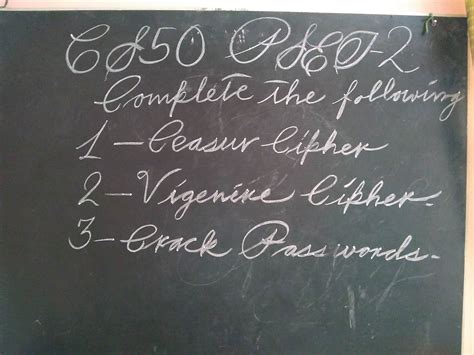 CS50 PSET-2
Complete the following
1-Ceasur Cipher
2-Vigenire Cipher.
3-Crack Passwords.